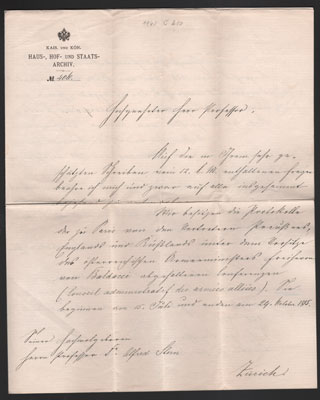 KAIS. UND KÖN.
HAUS-, HOF- UND STAATS-
ARCHIV.
№ 406
Hochgeehrter Herr Professor!
Auf die in Ihrem sehr ge-
schätzten Schreiben vom 12. d. M. enthaltenen Fragen
ich mich
Wir besitzen die Protokolle
der zu Paris von den Vertretern Preußens,
Englands und Rußlands unter dem Vorsitze
des österreichischen Freiherrn
von Baldacci abgehaltenen Conferenzen
(Conseil administratif des armées alliées). Sie
beginnen am Juli und enden am 24. October 1815.
Seiner Hochwolgeboren
Herrn Professor Dr Alfred Stern
Zürich